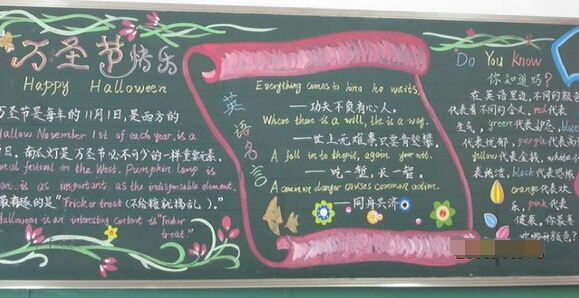 万圣节快乐
Happy Halloween
万圣节是每年的11月1日,是西方的
Hallow November 1st of each year, is a
日。南瓜灯是万圣节必不可少的一样重要元素。
festival in the West. Pumpkin lamp is
is as important as the indispensable element.
最有趣的是"Trick or treat (不给糖就捣乱)。"
Halloween is an interesting content is "Trick or
treat."
英语名言
Everything comes to him who waits.
——功夫不负有心人。
Where there is a will, there is a way.
——世上无难事只要肯登攀。
A fall in to the pit, a gain your wit.
——吃一堑,长一智。
A common danger causes common action.
——同舟共济。
Do You Know
你知道吗?
在英语里边,不同的颜色
代表着不同的含义,red代表
生气,green代表妒忌,blue
代表忧郁,purple代表高
yellow代表金钱,white代
表纯洁,black代表恐怖
orange代表欢
乐,pink代表
健康,你喜欢
哪种颜色?